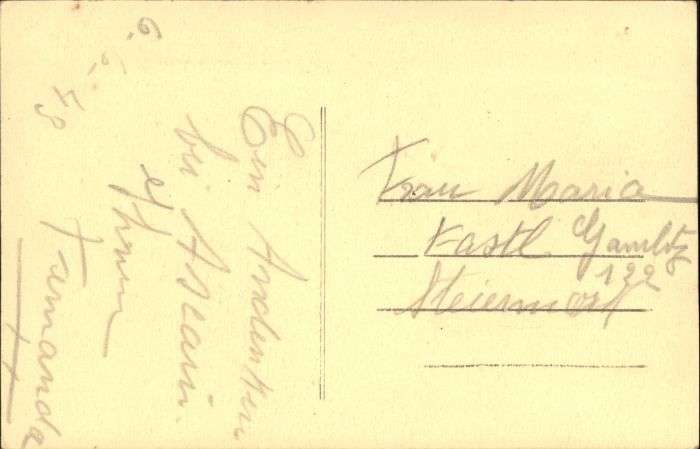 6. 5. 49
Ein Andenken
bei Ascani
Fernanda
Frau Maria
Kastl Gamlitz
122
Steiermark